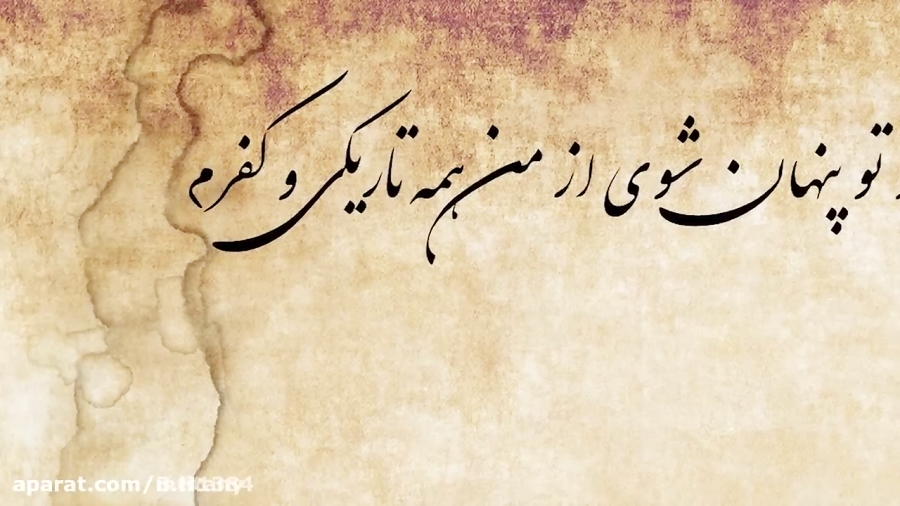 تو پنهان شوی از من همه تاریکی و کفرم
aparat.com/